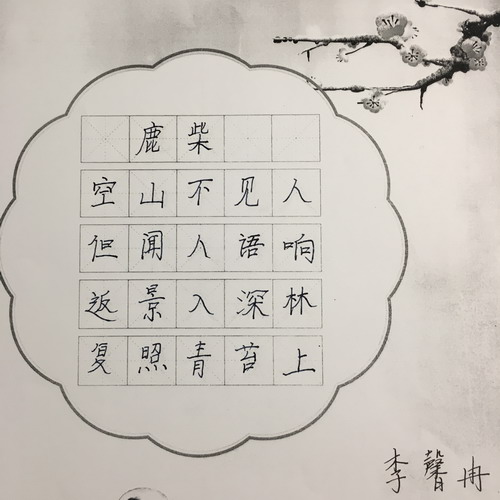 鹿柴
空山不见人
但闻人语响
返景入深林
复照青苔上
李馨冉